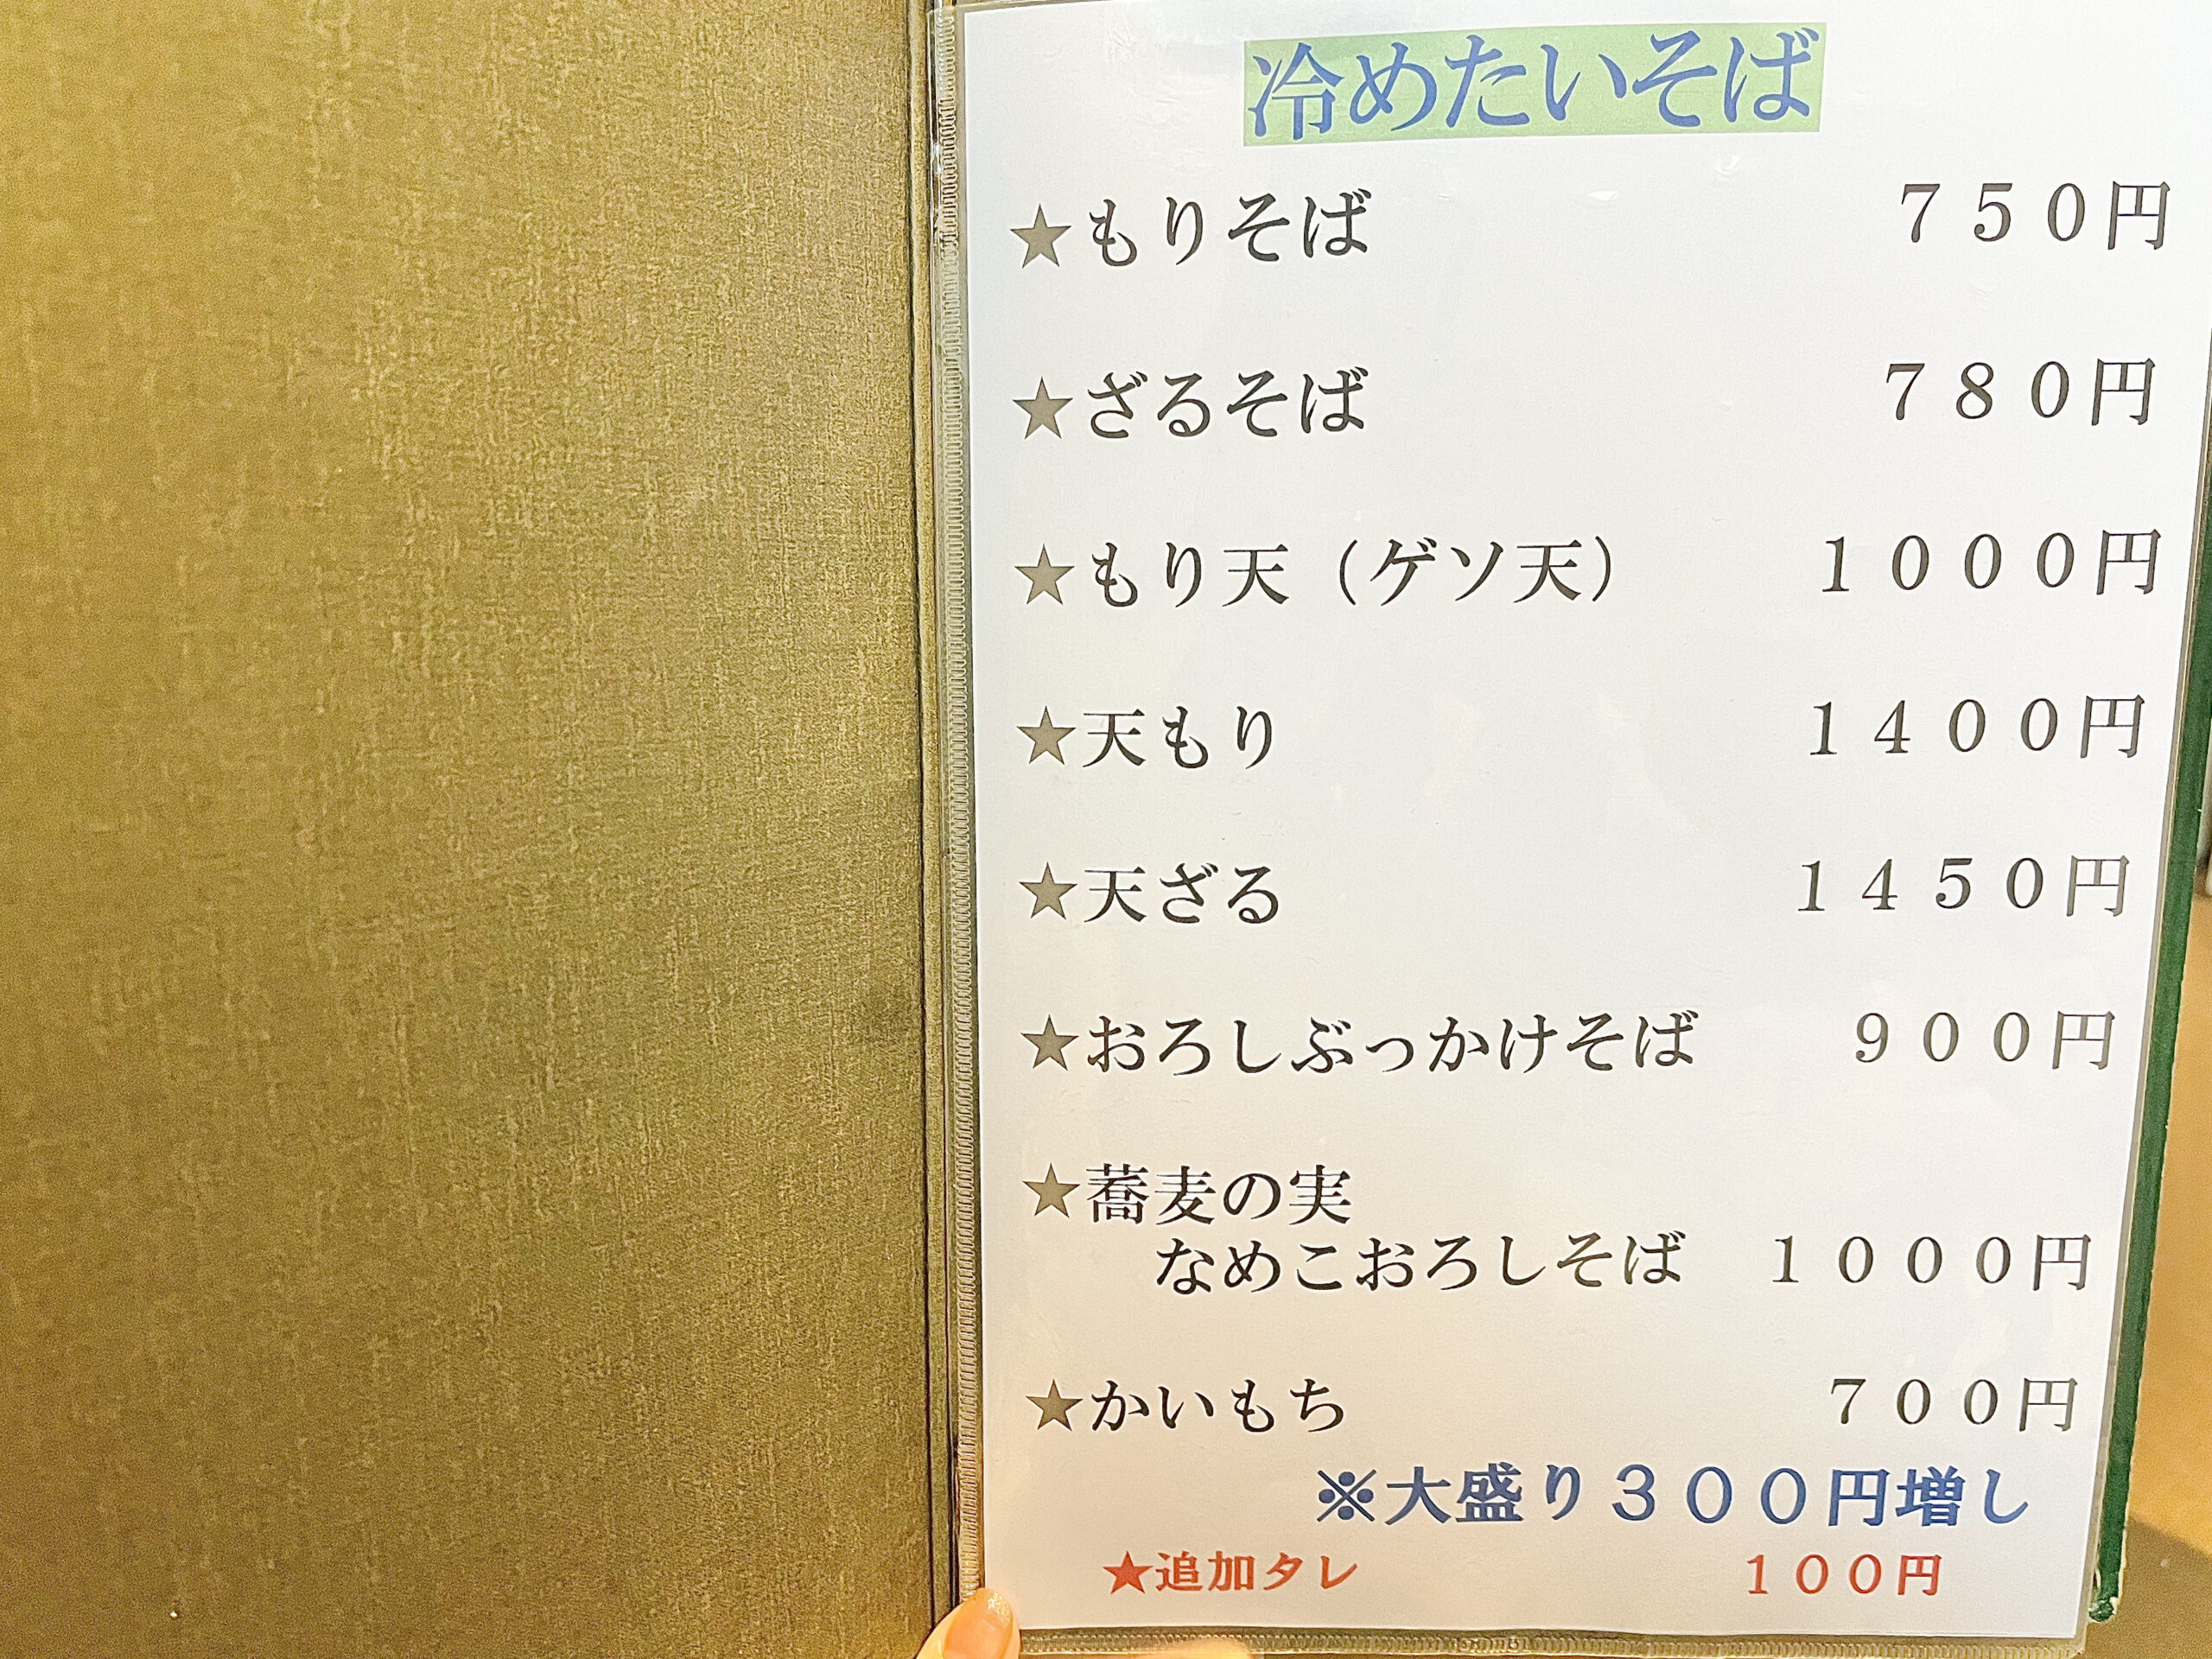 冷めたいそば
★もりそば ７５０円
★ざるそば ７８０円
★もり天（ゲソ天） １０００円
★天もり １４００円
★天ざる １４５０円
★おろしぶっかけそば ９００円
★蕎麦の実
なめこおろしそば １０００円
★かいもち ７００円
※大盛り３００円増し
★追加タレ １００円